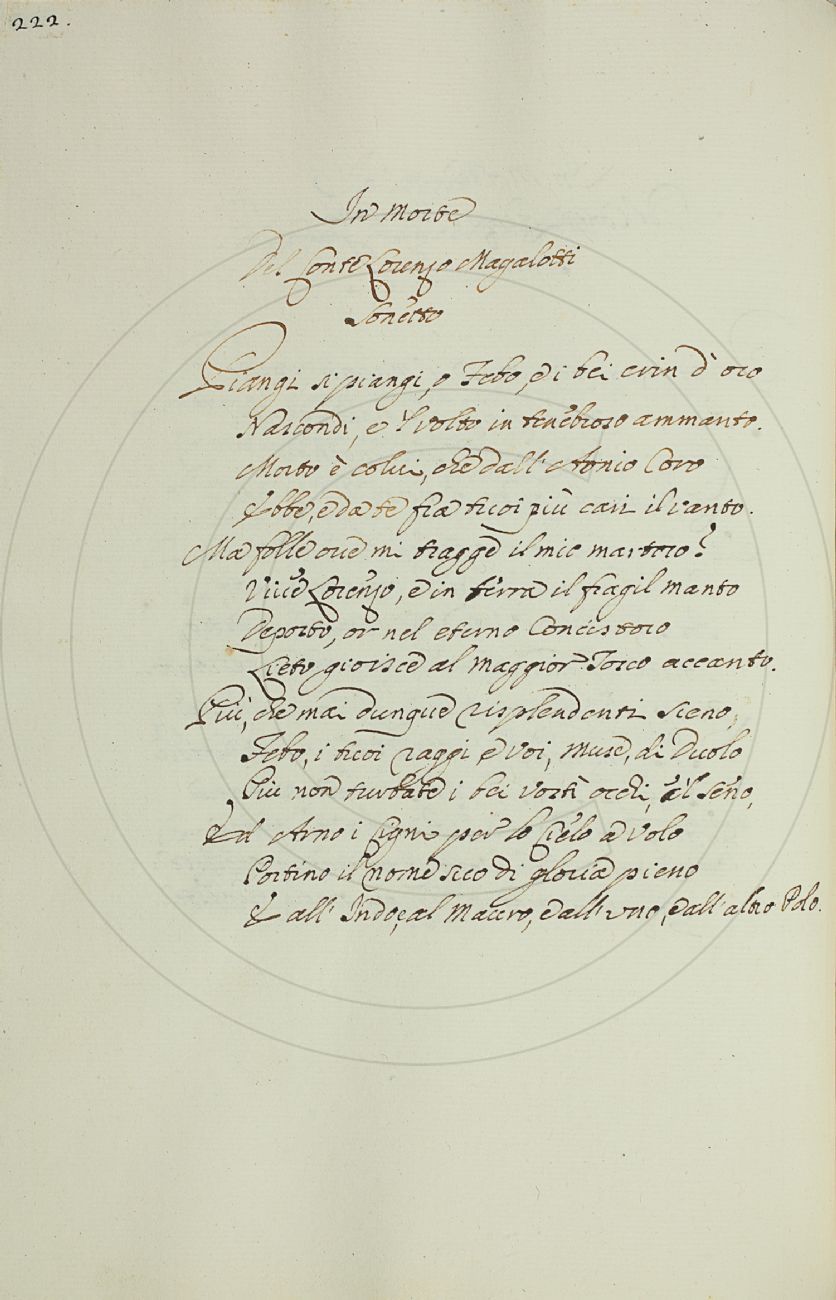 222.
In Morte
Del Conte Lorenzo Magalotti
Sonetto
Piangi si piangi, o Febo, e i bei crin d'oro
Nascondi, e 'l volto in tenebroso ammanto.
Morto è colui, che dall' Aonio Coro
Ebbe, e da te fra tuoi più cari il vanto.
Ma folle ove mi tragge il mio martoro?
Vive Lorenzo, e in terra il fragil manto
Deposto, or nel eterno Concistoro
Lieto gioisce al maggior Tosco accanto.
Più, che mai dunque risplendenti sieno,
Febo, i tuoi raggi e voi, Muse, di Duolo
Più non turbate i bei vostri occhi, e 'l seno,
Ed Arno i Cigni per lo Cielo a volo
Portino il nome suo di gloria pieno
E all' Indo, e al Mauro, e all' uno, e all' altro Polo.